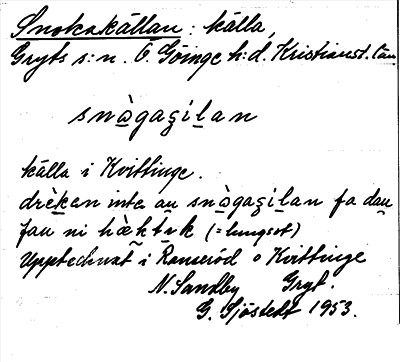 Snokakällan: källa,
Gryts s:n. Ö. Göinge h:d. Kristianst. län
snògaʒíḷan
källa i Kvittinge.
drèkan inte au snògaʒíḷan fa dau
fau ni hæktɩk (= lungsot)
Upptecknat i Ranseröd o Kvittinge
N. Sandby Gryt.
G. Sjöstedt 1953.